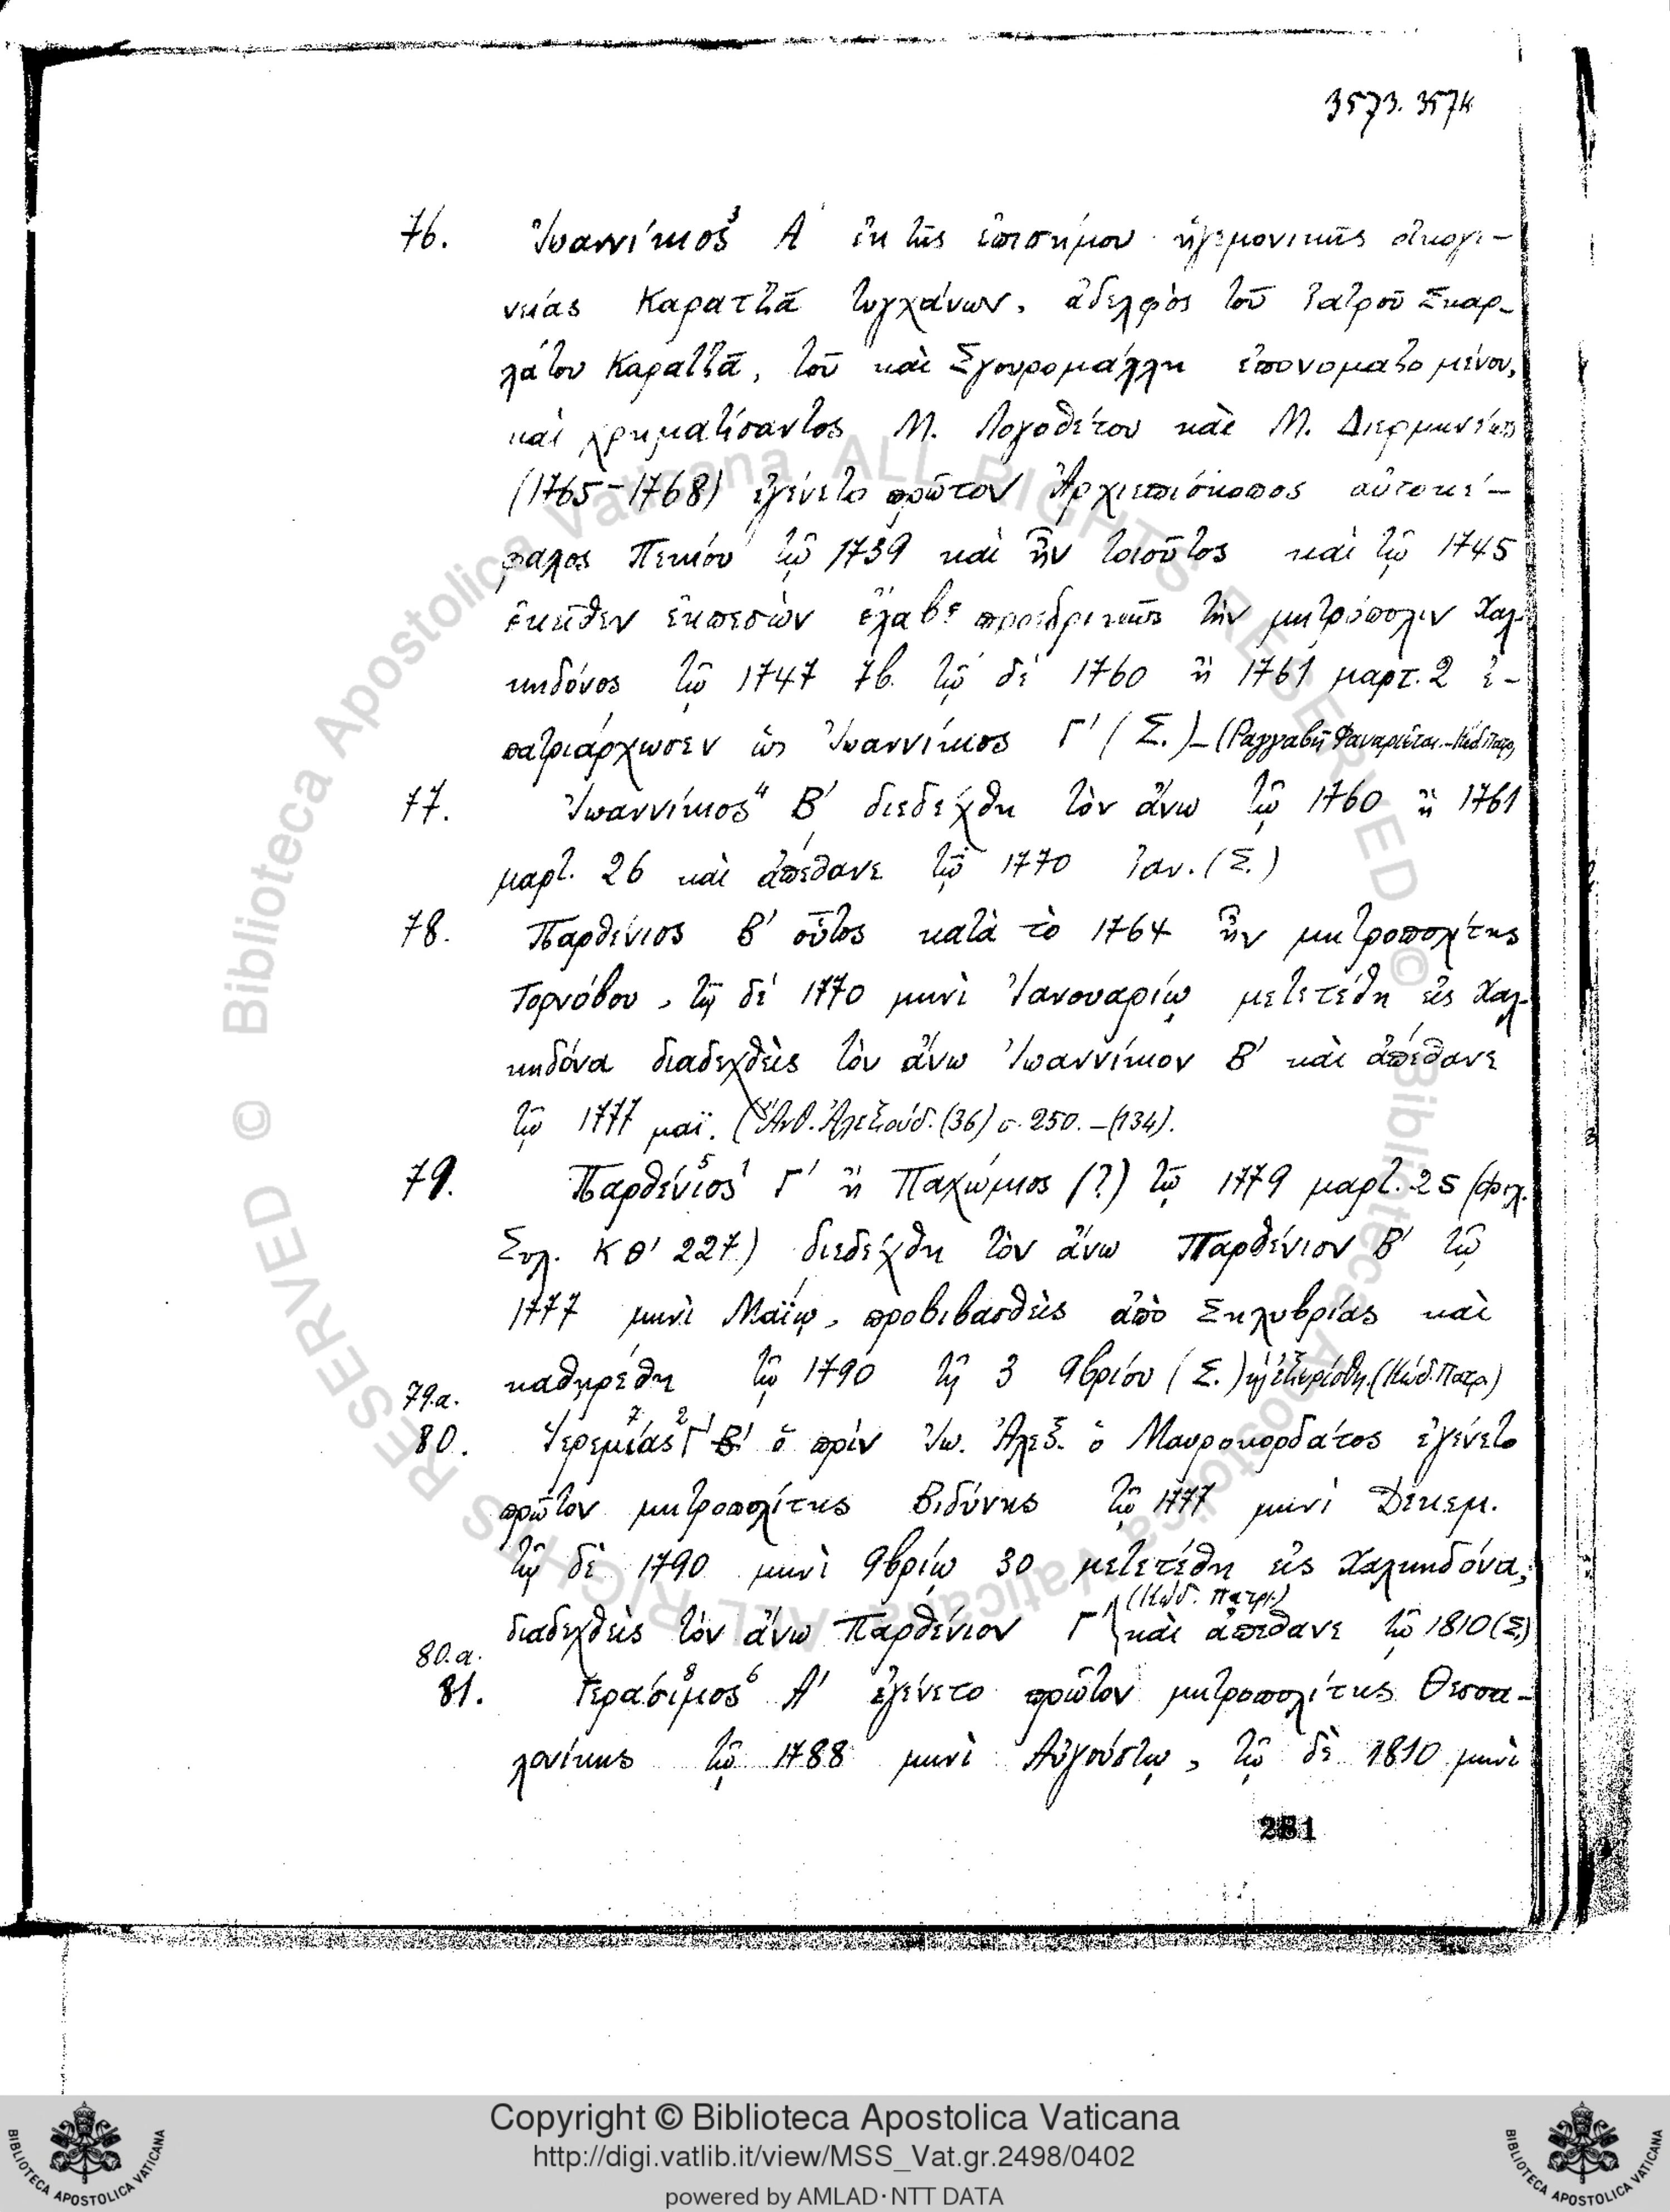 3573. 3574
76. Ἰωαννίκιος³ Α΄ ἐκ τῆς ἐπισήμου ἡγεμονικῆς οἰκογε-
νείας Καρατζᾶ τυγχάνων, ἀδελφὸς τοῦ Ἰατροῦ Σκαρ-
λάτου Καρατζᾶ, τοῦ καὶ Σγουρομάλλη ἐπονομαζομένου,
καὶ χρηματίσαντος Μ. Λογοθέτου καὶ Μ. Διερμηνέως
(1765-1768) ἐγένετο πρῶτον Ἀρχιεπίσκοπος αὐτοκέ-
φαλος Πεκίου τῷ 1739 καὶ ἦν τοιοῦτος καὶ τῷ 1745
ἐκεῖθεν ἐκπεσὼν ἔλαβε προεδρικῶς τὴν μητρόπολιν Χαλ-
κηδόνος τῷ 1747 7β. τῷ δὲ 1760 ἢ 1761 μαρτ. 2 ἐ-
πατριάρχωσεν ὡς Ἰωαννίκιος Γ΄ (Σ.) - (Ραγγαβῆ Φαναριῶται. - Κώδ. Πατρ.
77. Ἰωαννίκιος⁴ Β΄ διεδέχθη τὸν ἄνω τῷ 1760 ἢ 1761
μαρτ. 26 καὶ ἀπέθανε τῷ 1770 Ἰαν. (Σ.)
78. Παρθένιος Β΄ οὗτος κατὰ τὸ 1764 ἦν μητροπολίτης
Τορνόβου, τῷ δὲ 1770 μηνὶ Ἰανουαρίῳ μετετέθη εἰς Χαλ-
κηδόνα διαδεχθεὶς τὸν ἄνω Ἰωαννίκιον Β΄ καὶ ἀπέθανε
τῷ 1777 μαϊ. (Ἀνθ. Ἀλεξούδ. (36) σ. 250. - (134).
79. Παρθένιος⁵ Γ΄ ἢ Παχώμιος (?) τῷ 1779 μαρτ. 25 (Φιλ.
Συλ. ΚΘ΄ 227) διεδέχθη τὸν ἄνω Παρθένιον Β΄ τῷ
1777 μηνὶ Μαΐῳ, προβιβασθεὶς ἀπὸ Σηλυβρίας καὶ
καθῃρέθη τῷ 1790 τῇ 3 9βρίου (Σ.) ἢ ἐξωρίσθη. (Κώδ. Πατρ.)
79.α.
80. Ἱερεμίας⁷ Γ΄ Β΄ ὁ πρὶν Ἰω. Ἀλεξ. ὁ Μαυροκορδάτος ἐγένετο
πρῶτον μητροπολίτης Βιδύνης τῷ 1777 μηνὶ Δεκεμ.
τῷ δὲ 1790 μηνὶ 9βρίῳ 30 μετετέθη εἰς Χαλκηδόνα,
(Κώδ. Πατρ.)
διαδεχθεὶς τὸν ἄνω Παρθένιον Γ΄ καὶ ἀπέθανε τῷ 1810 (Σ.)
80.α.
81. Γεράσιμος⁸ Α΄ ἐγένετο πρῶτον μητροπολίτης Θεσσα-
λονίκης τῷ 1788 μηνὶ Αὐγούστῳ, τῷ δὲ 1810 μηνὶ
281
© Biblioteca Apostolica Vaticana ALL RIGHTS RESERVED © Biblioteca Apostolica Vaticana ALL RIGHTS RESERVED
Copyright © Biblioteca Apostolica Vaticana
http://digi.vatlib.it/view/MSS_Vat.gr.2498/0402
powered by AMLAD·NTT DATA
BIBLIOTECA APOSTOLICA VATICANA
BIBLIOTECA APOSTOLICA VATICANA